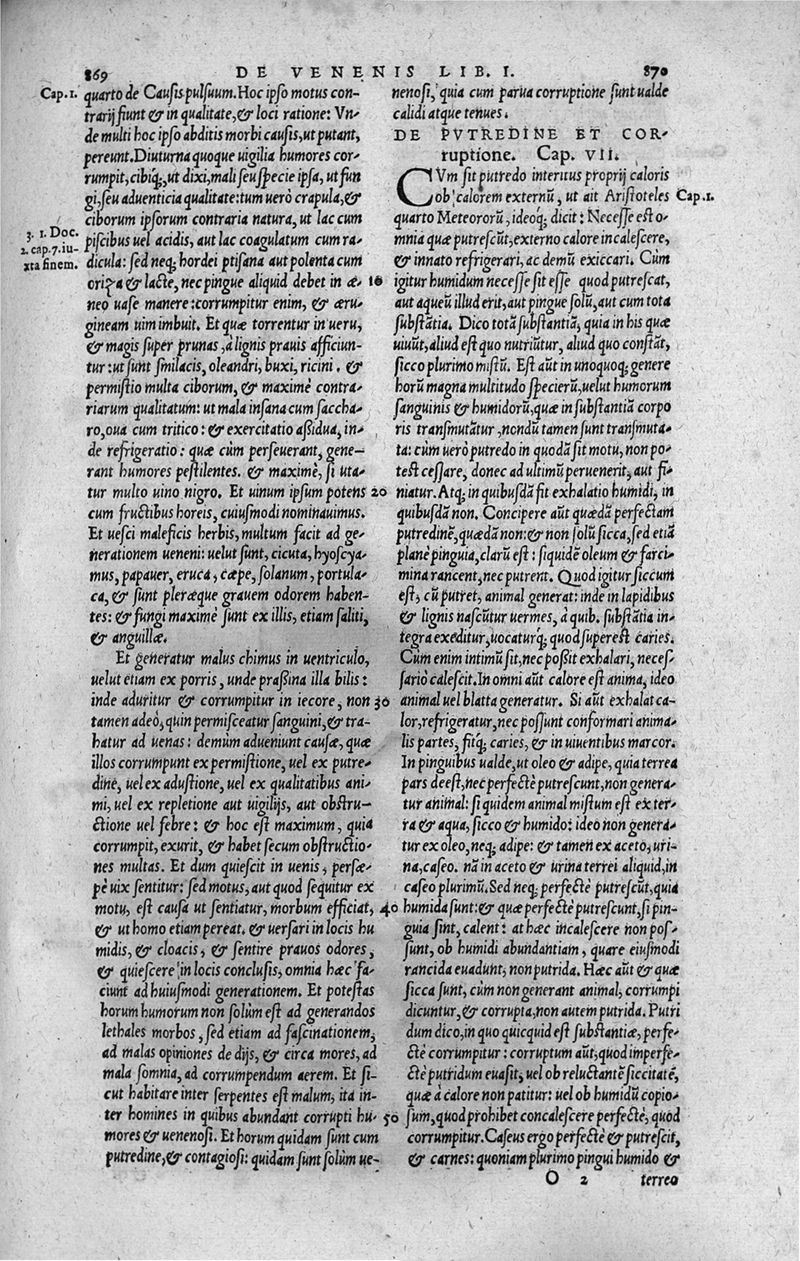 869
DE VENENIS LIB. I.
870
Cap. 1.
quarto de Causis pulsuum. Hoc ipso motus con-
trarij fiunt & in qualitate, & loci ratione: Vn-
de multi hoc ipso abditis morbi causis, ut putant,
pereunt. Diuturna quoque uigilia humores cor-
rumpit, cibiq;, ut dixi, mali seu specie ipsa, ut fun
gi, seu aduenticia qualitate: tum uerò crapula, &
ciborum ipsorum contraria natura, ut lac cum
3. 1. Doc.
2. cap. 7. iu-
xta finem.
piscibus uel acidis, aut lac coagulatum cum ra-
dicula: sed neq; hordei ptisana aut polenta cum
oriza & lacte, nec pingue aliquid debet in æ-
neo uase manere: corrumpitur enim, & æru-
gineam uim imbuit. Et quæ torrentur in ueru,
& magis super prunas, à lignis prauis afficiun-
tur: ut sunt smilacis, oleandri, buxi, ricini. &
permistio multa ciborum, & maximè contra-
riarum qualitatum: ut mala insana cum saccha-
ro, oua cum tritico: & exercitatio aßidua, in-
de refrigeratio: quæ cùm perseuerant, gene-
rant humores pestilentes. & maximè, si uta-
tur multo uino nigro. Et uinum ipsum potens
cum fructibus horeis, cuiusmodi nominauimus.
Et uesci maleficis herbis, multum facit ad ge-
nerationem ueneni: uelut sunt, cicuta, hyoscya-
mus, papauer, eruca, cæpe, solanum, portula-
ca, & sunt pleræque grauem odorem haben-
tes: & fungi maximè sunt ex illis, etiam saliti,
& anguillæ.
Et generatur malus chimus in uentriculo,
uelut etiam ex porris, unde praßina illa bilis:
inde aduritur & corrumpitur in iecore, non
tamen adeò, quin permisceatur sanguini, & tra-
hatur ad uenas: demum adueniunt causæ, quæ
illos corrumpunt ex permistione, uel ex putre-
dine, uel ex adustione, uel ex qualitatibus ani-
mi, uel ex repletione aut uigilijs, aut obstru-
ctione uel febre: & hoc est maximum, quia
corrumpit, exurit, & habet secum obstructio-
nes multas. Et dum quiescit in uenis, persæ-
pè uix sentitur: sed motus, aut quod sequitur ex
motu, est causa ut sentiatur, morbum efficiat,
& ut homo etiam pereat. & uersari in locis hu
midis, & cloacis, & sentire prauos odores,
& quiescere in locis conclusis, omnia hæc fa-
ciunt ad huiusmodi generationem. Et potestas
horum humorum non solùm est ad generandos
lethales morbos, sed etiam ad fascinationem,
ad malas opiniones de dijs, & circa mores, ad
mala somnia, ad corrumpendum aerem. Et si-
cut habitare inter serpentes est malum, ita in-
ter homines in quibus abundant corrupti hu-
mores & uenenosi. Et horum quidam sunt cum
putredine, & contagiosi: quidam sunt solùm ue-
10
20
30
40
50
nenosi, quia cum parua corruptione sunt ualde
calidi atque tenues.
DE PVTREDINE ET COR-
ruptione. Cap. VII.
CVm sit putredo interitus proprij caloris
ob calorem externũ, ut ait Aristoteles
Cap. 1.
quarto Meteororũ, ideoq; dicit: Necesse est o-
mnia quæ putrescũt, externo calore incalescere,
& innato refrigerari, ac demũ exiccari. Cùm
igitur humidum necesse sit esse quod putrescat,
aut aqueũ illud erit, aut pingue solũ, aut cum tota
substãtia. Dico totã substantiã, quia in his quæ
uiuũt, aliud est quo nutriũtur, aliud quo constãt,
sicco plurimo mistũ. Est aũt in unoquoq; genere
horũ magna multitudo specierũ, uelut humorum
sanguinis & humidorũ, quæ in substãtiã corpo
ris transmutãtur, nondũ tamen sunt transmuta-
ta: cùm uerò putredo in quodã sit motu, non po-
test cessare, donec ad ultimũ peruenerit, aut fi-
niatur. Atq; in quibusdã fit exhalatio humidi, in
quibusdã non. Concipere aũt quædã perfectam
putredinẽ, quædã non: & non solũ sicca, sed etiã
planè pinguia, clarũ est: siquidẽ oleum & farci-
mina rancent, nec putrent. Quod igitur siccum
est, cũ putret, animal generat: inde in lapidibus
& lignis nascũtur uermes, à quib. substãtia in-
tegra exeditur, uocaturq; quod superest caries.
Cùm enim intimũ sit, nec poßit exhalari, neces-
sariò calescit. In omni aũt calore est anima, ideo
animal uel blatta generatur. Si aũt exhalat ca-
lor, refrigeratur, nec possunt conformari anima-
lis partes, fitq; caries, & in uiuentibus marcor.
In pinguibus ualde, ut oleo & adipe, quia terrea
pars deest, nec perfectè putrescunt, non genera-
tur animal: si quidem animal mistum est ex ter-
ra & aqua, sicco & humido: ideo non genera-
tur ex oleo, neq; adipe: & tamen ex aceto, uri-
na, caseo. nã in aceto & urina terrei aliquid, in
caseo plurimũ. Sed neq; perfectè putrescũt, quia
humida sunt: & quæ perfectè putrescunt, si pin-
guia sint, calent: at hæc incalescere non pos-
sunt, ob humidi abundantiam, quare eiusmodi
rancida euadunt, non putrida. Hæc aũt & quæ
sicca sunt, cùm non generant animal, corrumpi
dicuntur, & corrupta, non autem putrida. Putri
dum dico, in quo quicquid est substantiæ, perfe-
ctè corrumpitur: corruptum aũt, quod imperfe-
ctè putridum euasit, uel ob reluctantẽ siccitatẽ,
quæ à calore non patitur: uel ob humidũ copio-
sum, quod prohibet concalescere perfectè, quod
corrumpitur. Caseus ergo perfectè & putrescit,
& carnes: quoniam plurimo pingui humido &
O 2
terreo